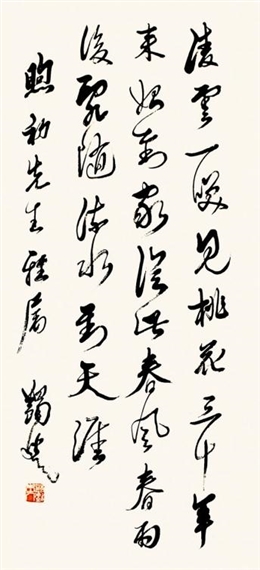 凌雲一咲見桃花三十年
来始到家從此春風春雨
後亂随流水到天涯
煦初先生雅属
蠲叟